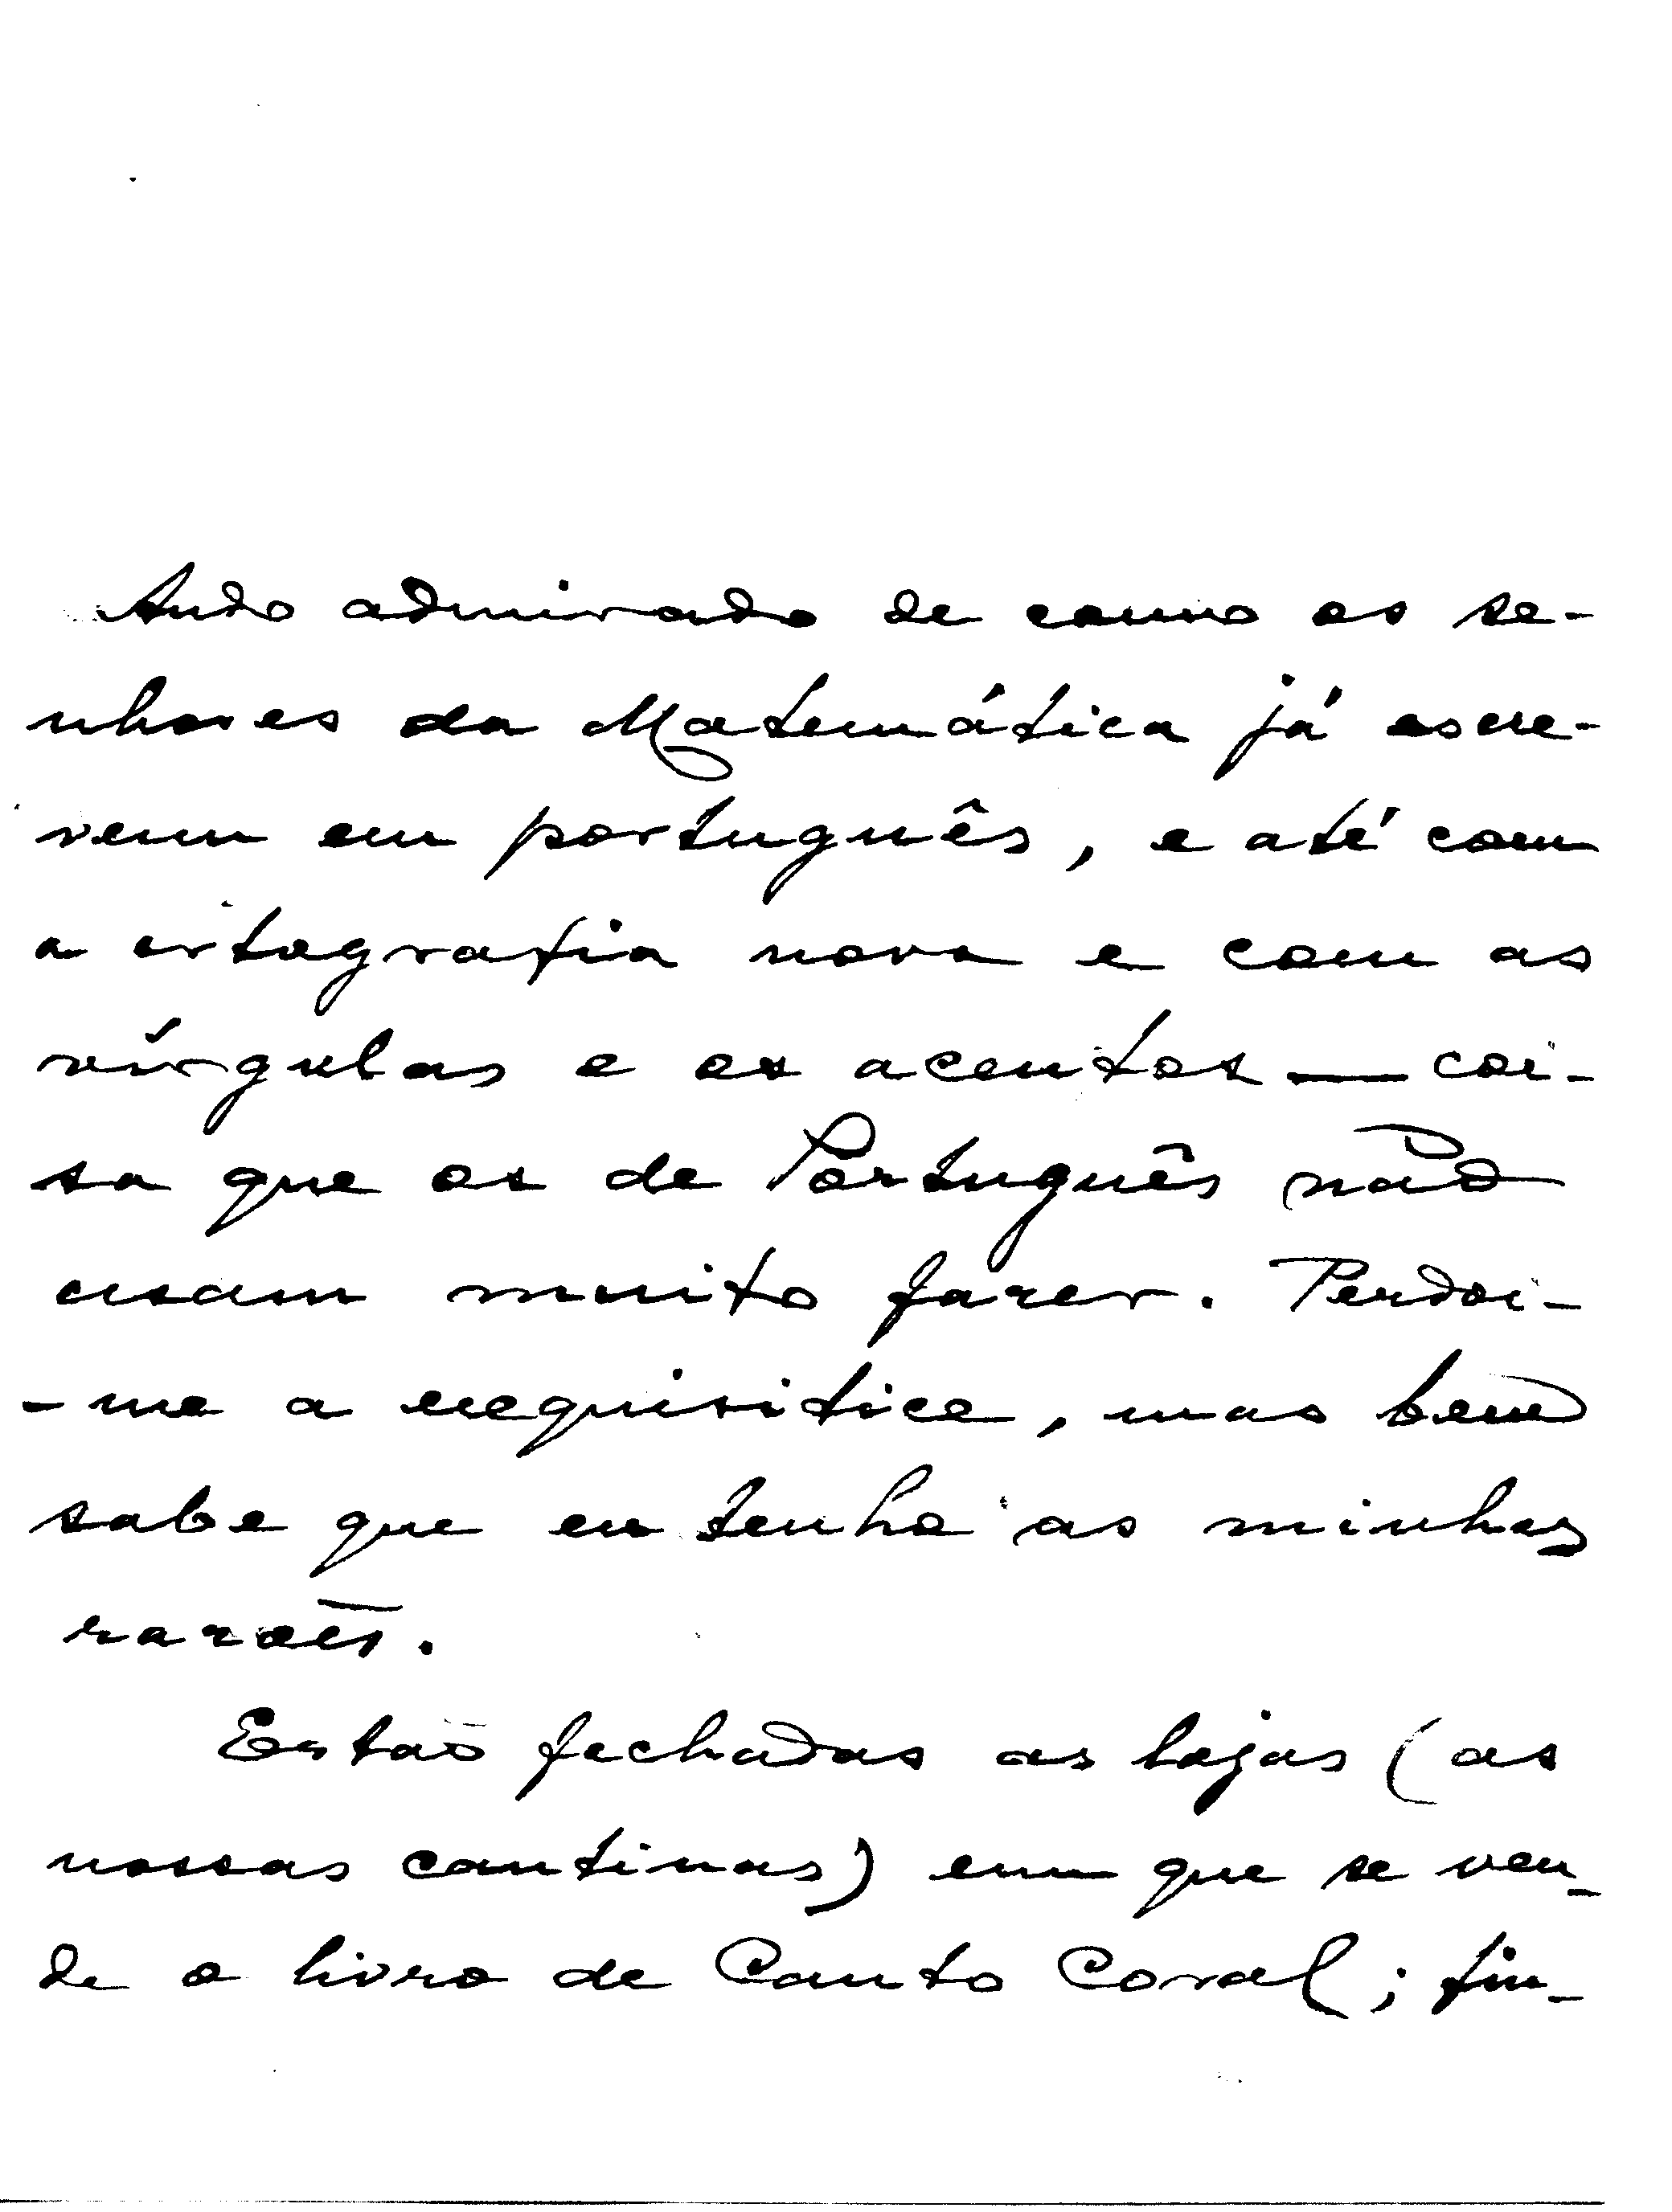 Ando admirado de como os se-
nhores da Matemática já escre-
vem em português, e até com
a ortografia nova e com as
vírgulas e os acentos — coi-
sa que os de Português não
usam muito fazer. Perdoi-
-me a exquisitice, mas bem
sabe que eu tenho as minhas
razões.
Estão fechadas as lojas (as
nossas cantinas) em que se ven-
de o livro de Canto Coral; fin-